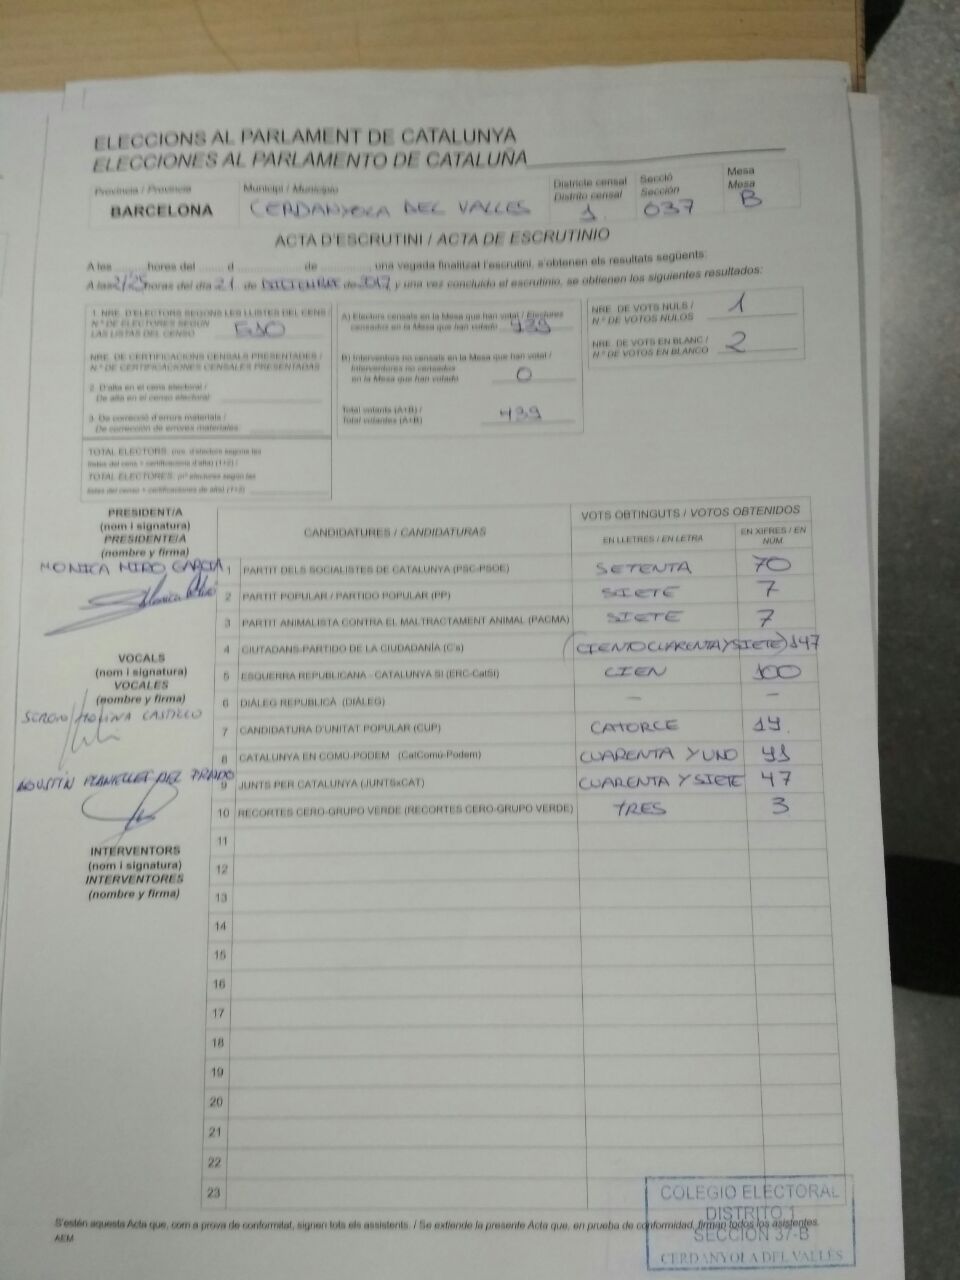 ELECCIONS AL PARLAMENT DE CATALUNYA
ELECCIONES AL PARLAMENTO DE CATALUÑA
Provincia / Provincia
BARCELONA
Municipi / Municipio
CERDANYOLA DEL VALLES
Districte censal
Distrito censal
1
Secció
Sección
037
Mesa
Mesa
B
ACTA D'ESCRUTINI / ACTA DE ESCRUTINIO
A les ...... hores del ........ d ................. de ............, una vegada finalitzat l'escrutini, s'obtenen els resultats següents:
A las 21/25 horas del día 21 de DICIEMBRE de 2017 y una vez concluido el escrutinio, se obtienen los siguientes resultados:
1. NRE. D'ELECTORS SEGONS LES LLISTES DEL CENS /
N.º DE ELECTORES SEGÚN
LAS LISTAS DEL CENSO
NRE. DE CERTIFICACIONS CENSALS PRESENTADES /
N.º DE CERTIFICACIONES CENSALES PRESENTADAS
2. D'alta en el cens electoral /
De alta en el censo electoral
3. De correcció d'errors materials /
De corrección de errores materiales
TOTAL ELECTORS. (nre. d'electors segons les
llistes del cens + certificacions d'alta) (1+2) /
TOTAL ELECTORES. (nº electores según las
listas del censo + certificaciones de alta) (1+2)
A) Electors censats en la Mesa que han votat / Electores
censados en la Mesa que han votado 439
B) Interventors no censats en la Mesa que han votat /
Interventores no censados
en la Mesa que han votado 0
Total votants (A+B) /
Total votantes (A+B) 439
NRE. DE VOTS NULS /
N.º DE VOTOS NULOS 1
NRE. DE VOTS EN BLANC /
N.º DE VOTOS EN BLANCO 2
PRESIDENT/A
(nom i signatura)
PRESIDENTE/A
(nombre y firma)
MONICA MIRO GARCIA
VOCALS
(nom i signatura)
VOCALES
(nombre y firma)
SERGIO MOLINA CASTILLO
AGUSTÍN PLANELLES DEL PRADO
INTERVENTORS
(nom i signatura)
INTERVENTORES
(nombre y firma)
CANDIDATURES / CANDIDATURAS
VOTS OBTINGUTS / VOTOS OBTENIDOS
EN LLETRES / EN LETRA
EN XIFRES / EN NÚM.
1 PARTIT DELS SOCIALISTES DE CATALUNYA (PSC-PSOE) SETENTA 70
2 PARTIT POPULAR / PARTIDO POPULAR (PP) SIETE 7
3 PARTIT ANIMALISTA CONTRA EL MALTRACTAMENT ANIMAL (PACMA) SIETE 7
4 CIUTADANS-PARTIDO DE LA CIUDADANÍA (C's) (CIENTO CUARENTA Y SIETE) 147
5 ESQUERRA REPUBLICANA - CATALUNYA SI (ERC-CatSí) CIEN 100
6 DIÀLEG REPUBLICÀ (DIÀLEG) — —
7 CANDIDATURA D'UNITAT POPULAR (CUP) CATORCE 14
8 CATALUNYA EN COMÚ-PODEM (CatComú-Podem) CUARENTA Y UNO 41
9 JUNTS PER CATALUNYA (JUNTSxCAT) CUARENTA Y SIETE 47
10 RECORTES CERO-GRUPO VERDE (RECORTES CERO-GRUPO VERDE) TRES 3
11
12
13
14
15
16
17
18
19
20
21
22
23
S'estén aquesta Acta que, com a prova de conformitat, signen tots els assistents. / Se extiende la presente Acta que, en prueba de conformidad, firman todos los asistentes.
AEM
COLEGIO ELECTORAL
DISTRITO 1
SECCION 37-B
CERDANYOLA DEL VALLÉS